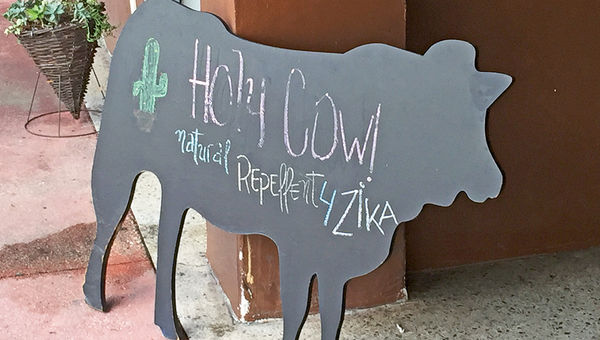 Holy Cow!
natural
Repellent 4 Zika